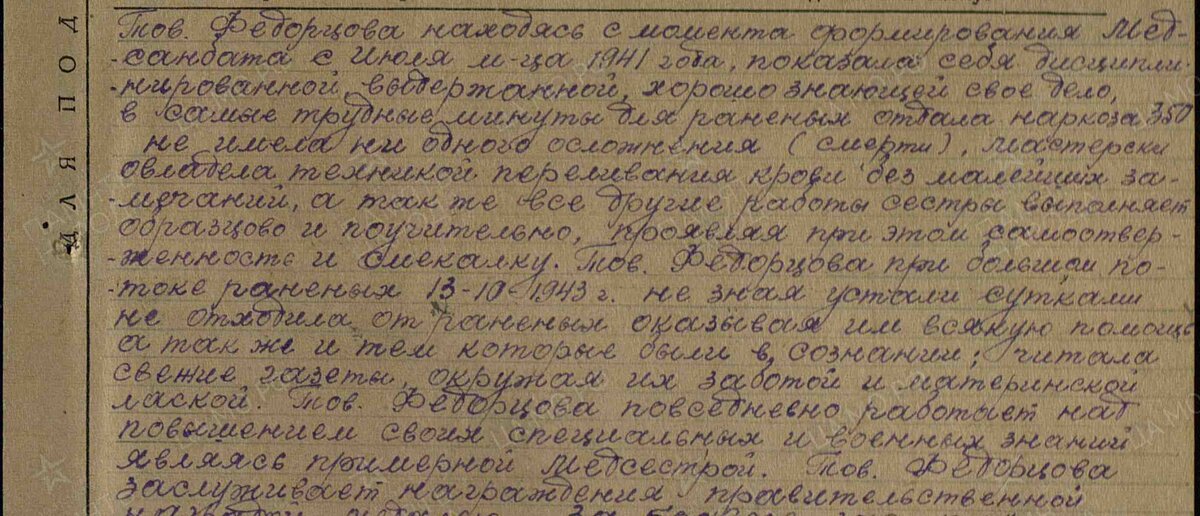 Тов. Федорцова находясь с момента формирования Мед-
-санбата с Июля м-ца 1941 года, показала себя дисципли-
-нированной, выдержанной, хорошо знающей свое дело,
в самые трудные минуты для раненых отдала наркоза 350
не имела ни одного осложнения (смерти), мастерски
овладела техникой переливания крови без малейших за-
-мечаний, а так же все другие работы сестры выполняет
образцово и поучительно, проявляя при этом самоотвер-
-женность и смекалку. Тов. Федорцова при большом по-
-токе раненых 13-10-1943 г. не зная устали сутками
не отходила от раненых оказывая им всякую помощь
а так же и тем которые были в сознании; читала
свежие газеты, окружая их заботой и материнской
лаской. Тов. Федорцова повседневно работает над
повышением своих специальных и военных знаний
являясь примерной медсестрой. Тов. Федорцова
заслуживает награждения правительственной
ДЛЯ ПОД